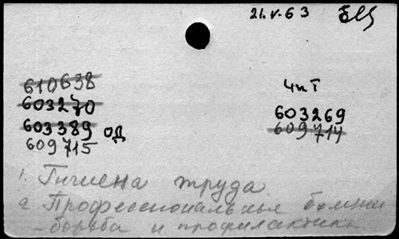 21.V-63 БЩ
610638
603270
603389 ОД
609715
Чит
603269
609714
1. Гигиена труда.
2. Профессиональные болезни
- борьба и профилактика